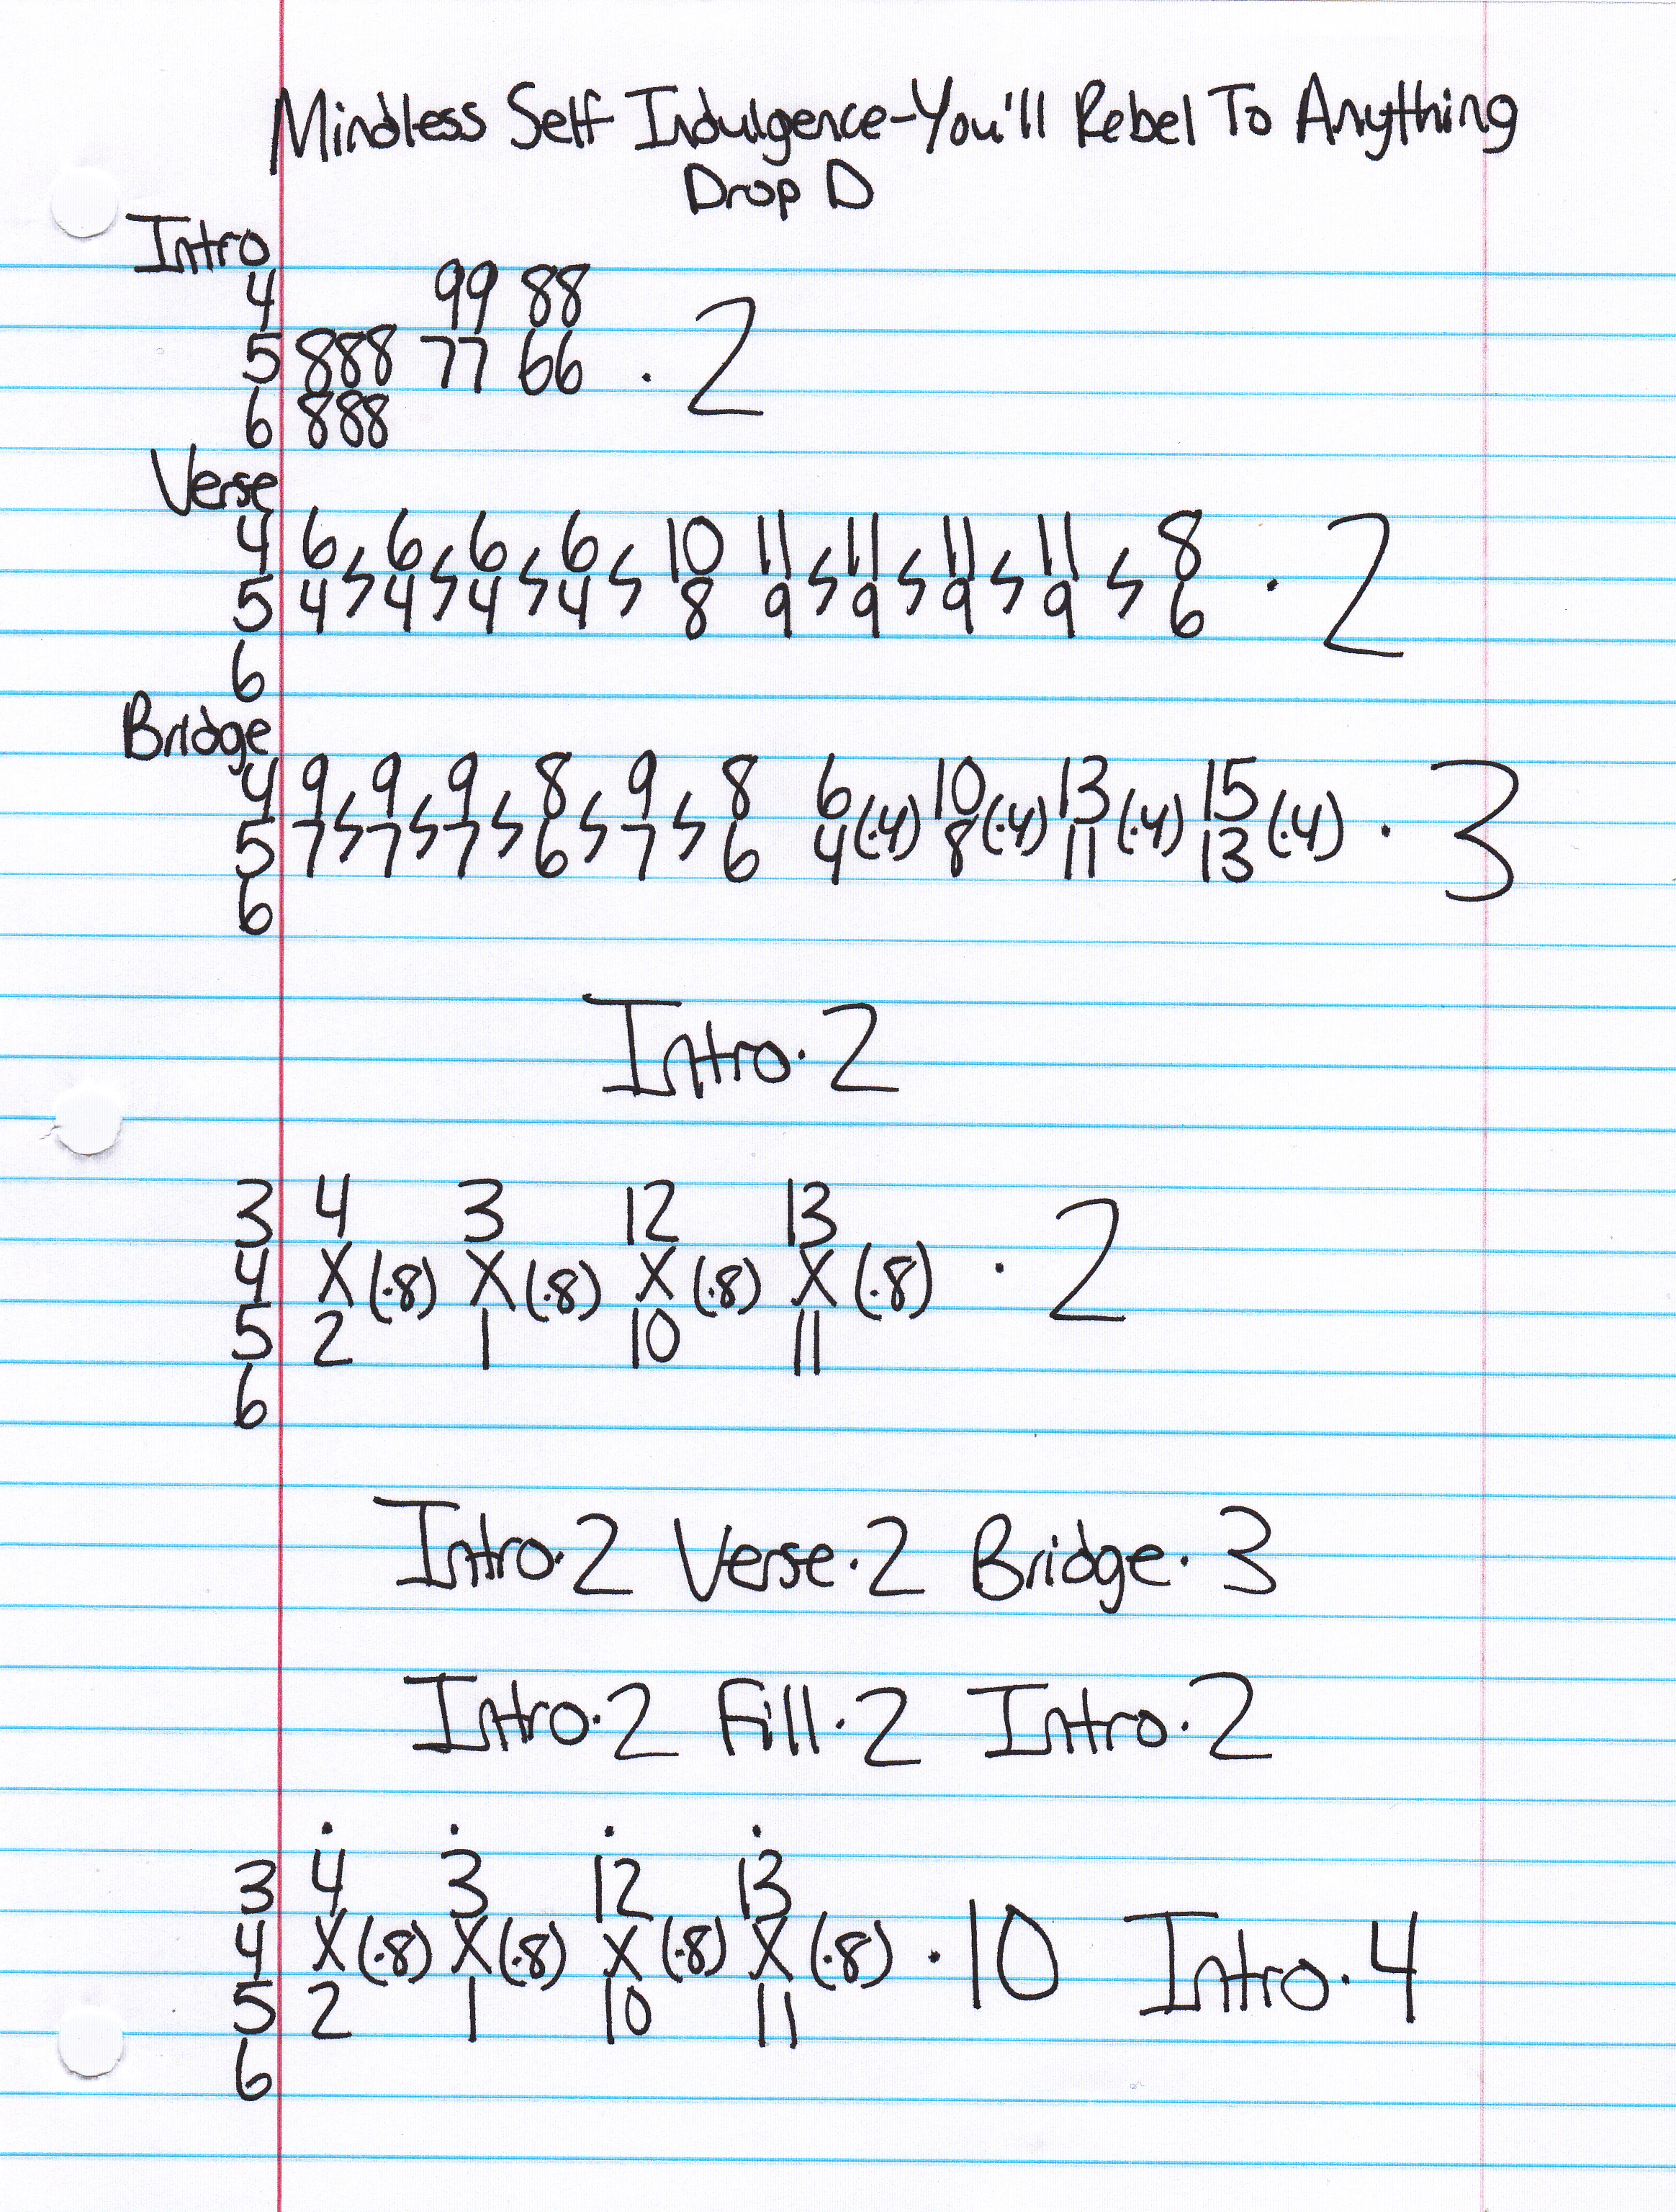 Mindless Self Indulgence-You'll Rebel To Anything
Drop D
Intro
4 99 88
5 888 77 66 · 2
6 888
Verse
4 6 6 6 6 10 11 11 11 11 8
5 4 4 4 4 8 9 9 9 9 6 · 2
6
Bridge
4 9 9 9 8 9 8 6 (·4) 10 (·4) 13 (·4) 15 (·4) · 3
5 7 7 7 6 7 6 4 8 11 13
6
Intro · 2
3 4 3 12 13
4 X (·8) X (·8) X (·8) X (·8) · 2
5 2 1 10 11
6
Intro · 2 Verse · 2 Bridge · 3
Intro · 2 Fill · 2 Intro · 2
. . . .
3 4 3 12 13
4 X (·8) X (·8) X (·8) X (·8) · 10 Intro · 4
5 2 1 10 11
6